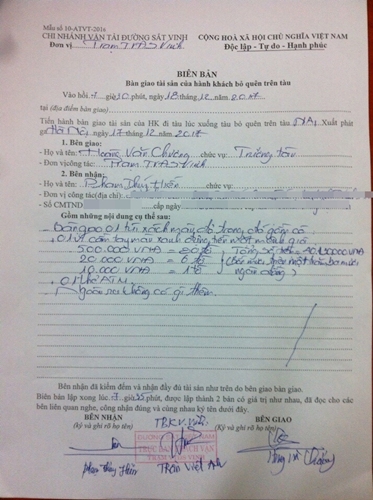 Mẫu số 10-ATVT-2016
CHI NHÁNH VẬN TẢI ĐƯỜNG SẮT VINH
Đơn vị Trạm TPĐS Vinh
CỘNG HOÀ XÃ HỘI CHỦ NGHĨA VIỆT NAM
Độc lập - Tự do - Hạnh phúc
BIÊN BẢN
Bàn giao tài sản của hành khách bỏ quên trên tàu
Vào hồi 7 giờ 30 phút, ngày 18 tháng 12 2017
tại (địa điểm bàn giao)
Tiến hành bàn giao tài sản của HK đi tàu lúc xuống tàu bỏ quên trên tàu NA1 Xuất phát
ga Hà Nội ngày 17 tháng 12 2017
1. Bên giao:
- Họ và tên: Hoàng Văn Chương chức vụ: Trưởng tàu
- Đơn vị công tác: Trạm TPĐS Vinh
2. Bên nhận:
- Họ và tên: Phạm Thúy Hiền chức vụ:
- Đơn vị công tác(địa chỉ):
- Số CMTND cấp ngày
Gồm những nội dung cụ thể sau:
bàn giao 01 túi xách màu đỏ trong đó gồm có
01 ví cầm tay màu xanh đựng tiền mặt mệnh giá
500.000 VNĐ = 60 tờ Tổng số tiền
20.000 VNĐ = 6 tờ
10.000 VNĐ = 1 tờ ngàn đồng)
01 thẻ ATM
Ngoài ra không có gì thêm.
Bên nhận đã kiểm đếm và nhận đầy đủ tài sản như trên do bên giao bàn giao.
Biên bản lập xong lúc 7 giờ 35 phút, được lập thành 2 bản có giá trị như nhau, đã đọc cho các
bên liên quan nghe, công nhận đúng và cùng nhau ký tên dưới đây.
BÊN NHẬN
(ký và ghi rõ họ tên)
BÊN GIAO
(ký và ghi rõ họ tên)
Phạm Thúy Hiền
Trần Việt Anh